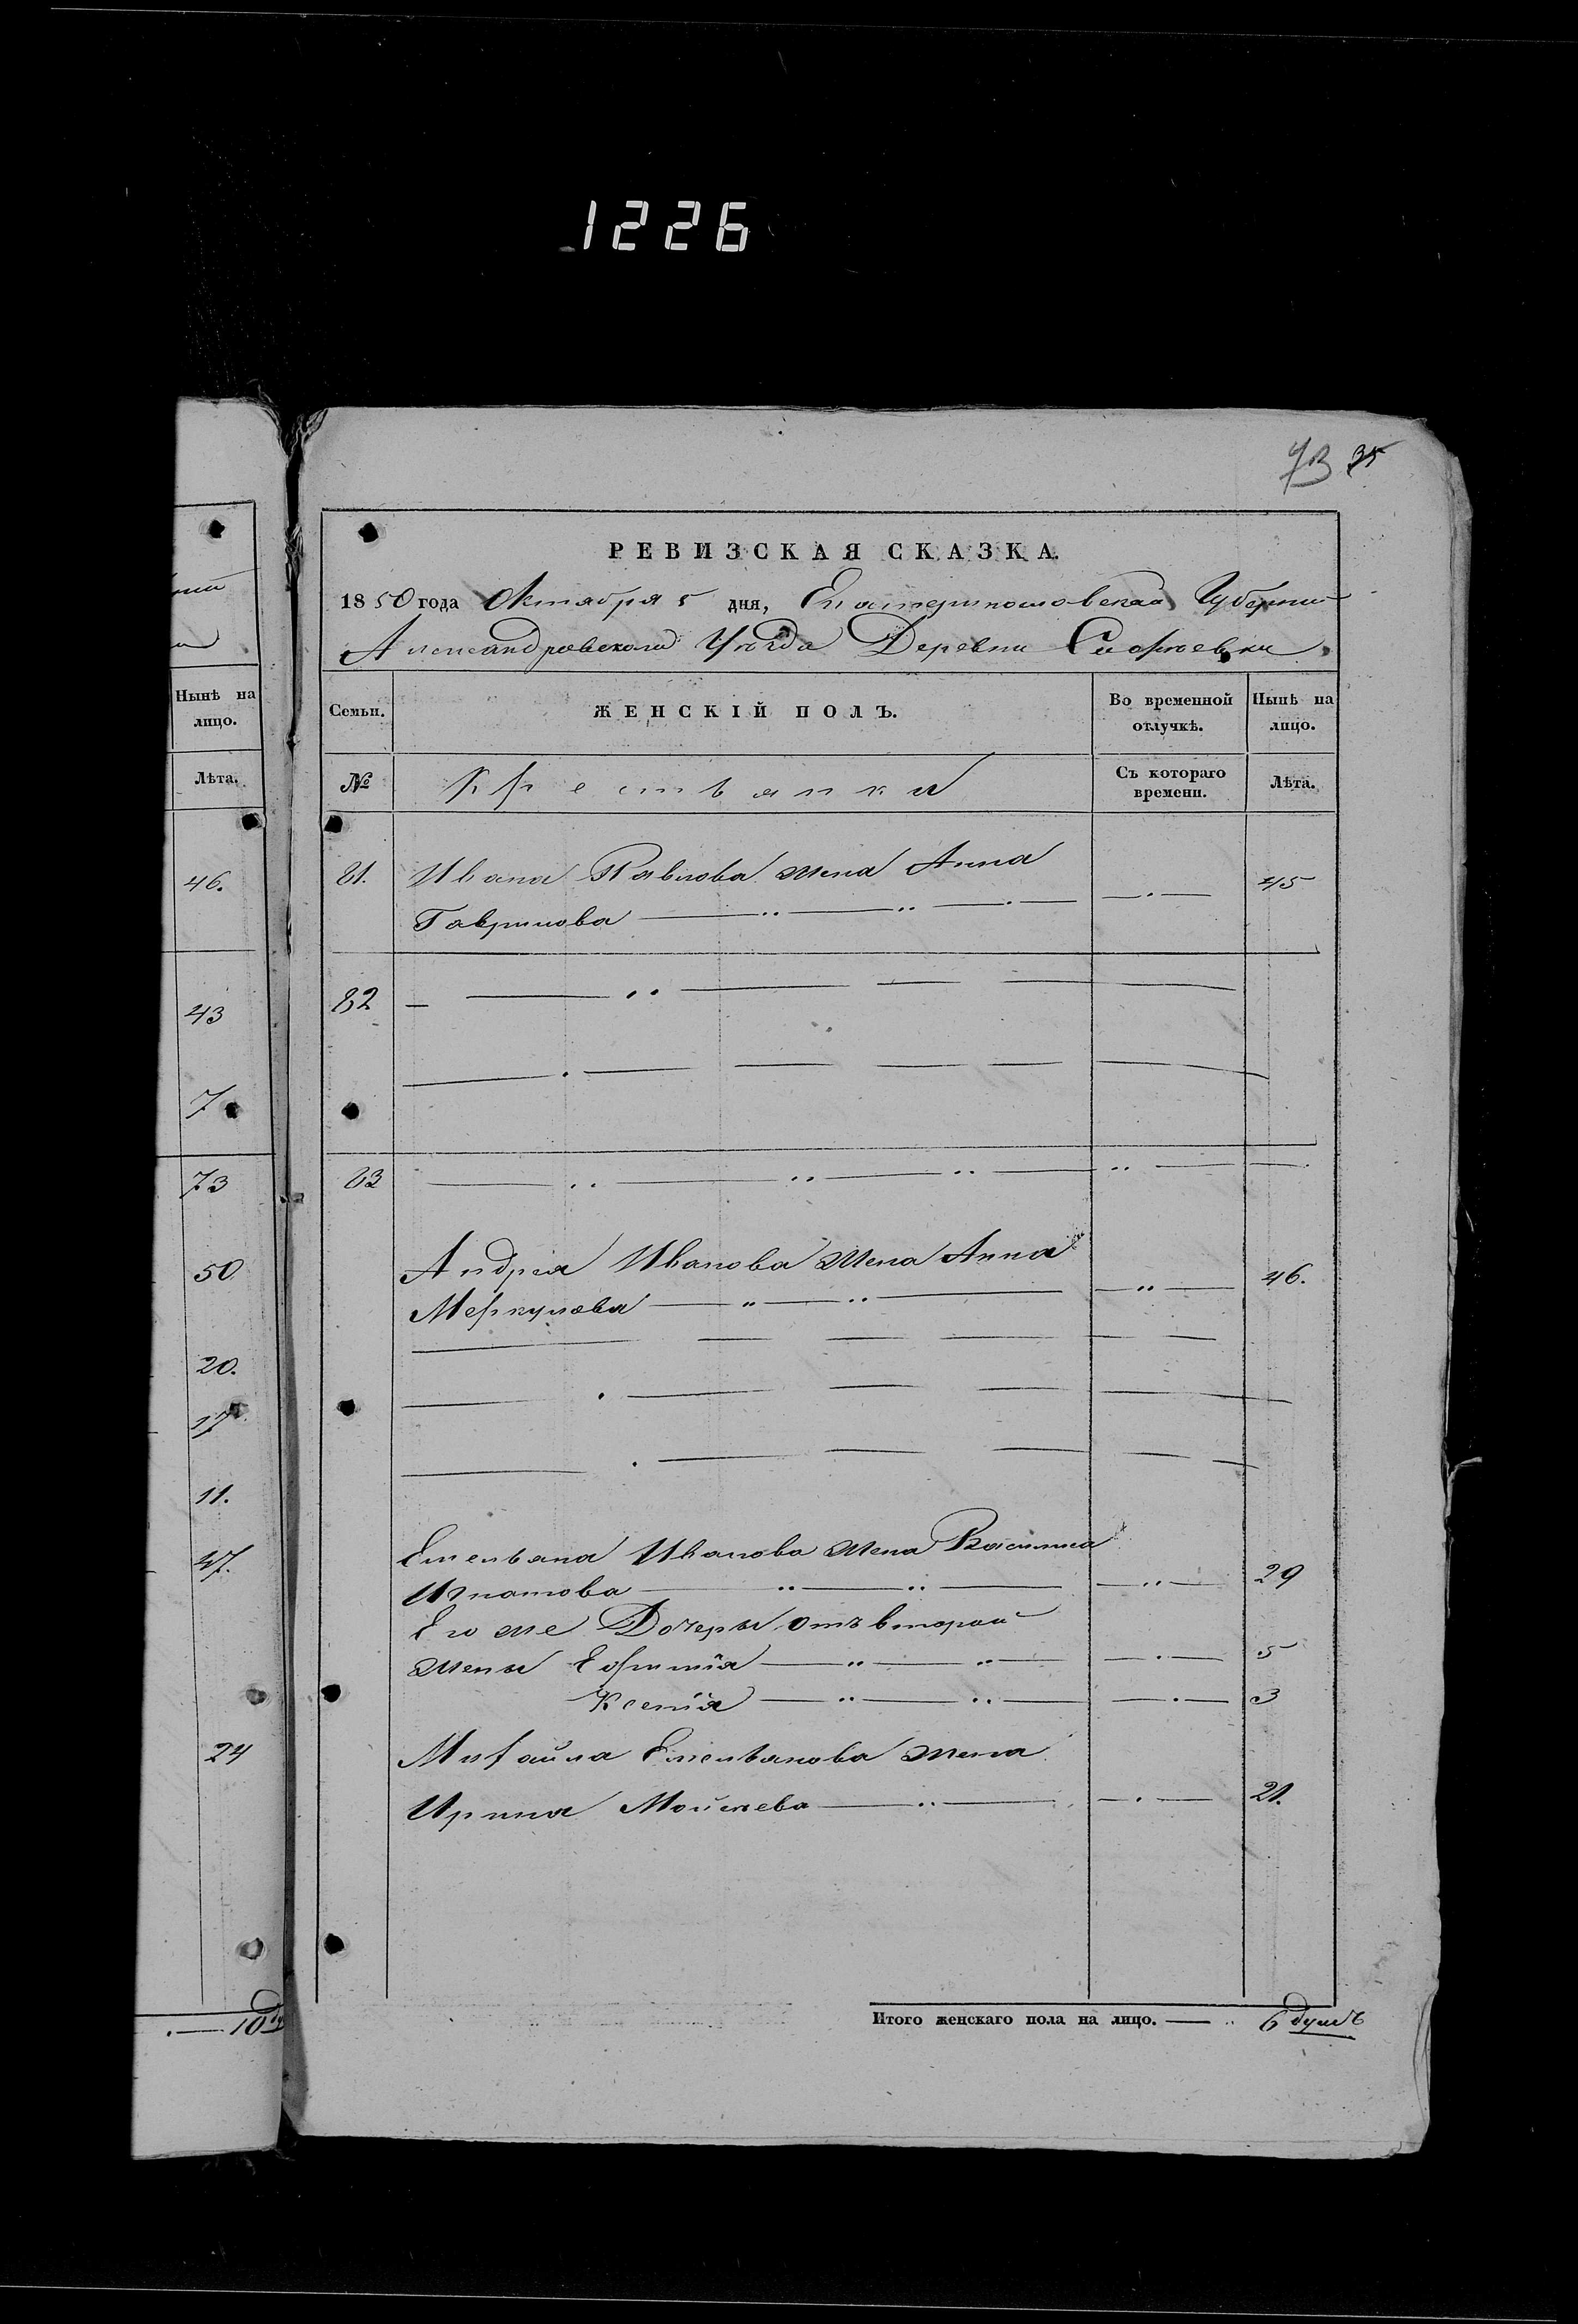 1226
35
РЕВИЗСКАЯ СКАЗКА.
1850 года Октября 5 дня, Екатеринославской Губернии
Александровскаго Уѣзда Деревни
Нынѣ на
лицо.
Лѣта.
46.
43
7
73
50
20.
17.
11.
47.
24
10
Семьи.
ЖЕНСКІЙ ПОЛЪ.
Во временной
отлучкѣ.
Нынѣ на
лицо.
№
Крестьянки
Съ котораго
времени.
Лѣта.
81. Ивана Павлова жена Анна
Гаврилова 45
82
83
Андрея Иванова жена Анна
Меркулова 46.
Емельяна Иванова жена Василиса
Игнатова 29
Его же Дочери отъ второй
жены Ефимія 5
Ксенія 3
Михайла Емельянова жена
Ирина Мойсеева 21.
Итого женскаго пола на лицо. 6 душъ